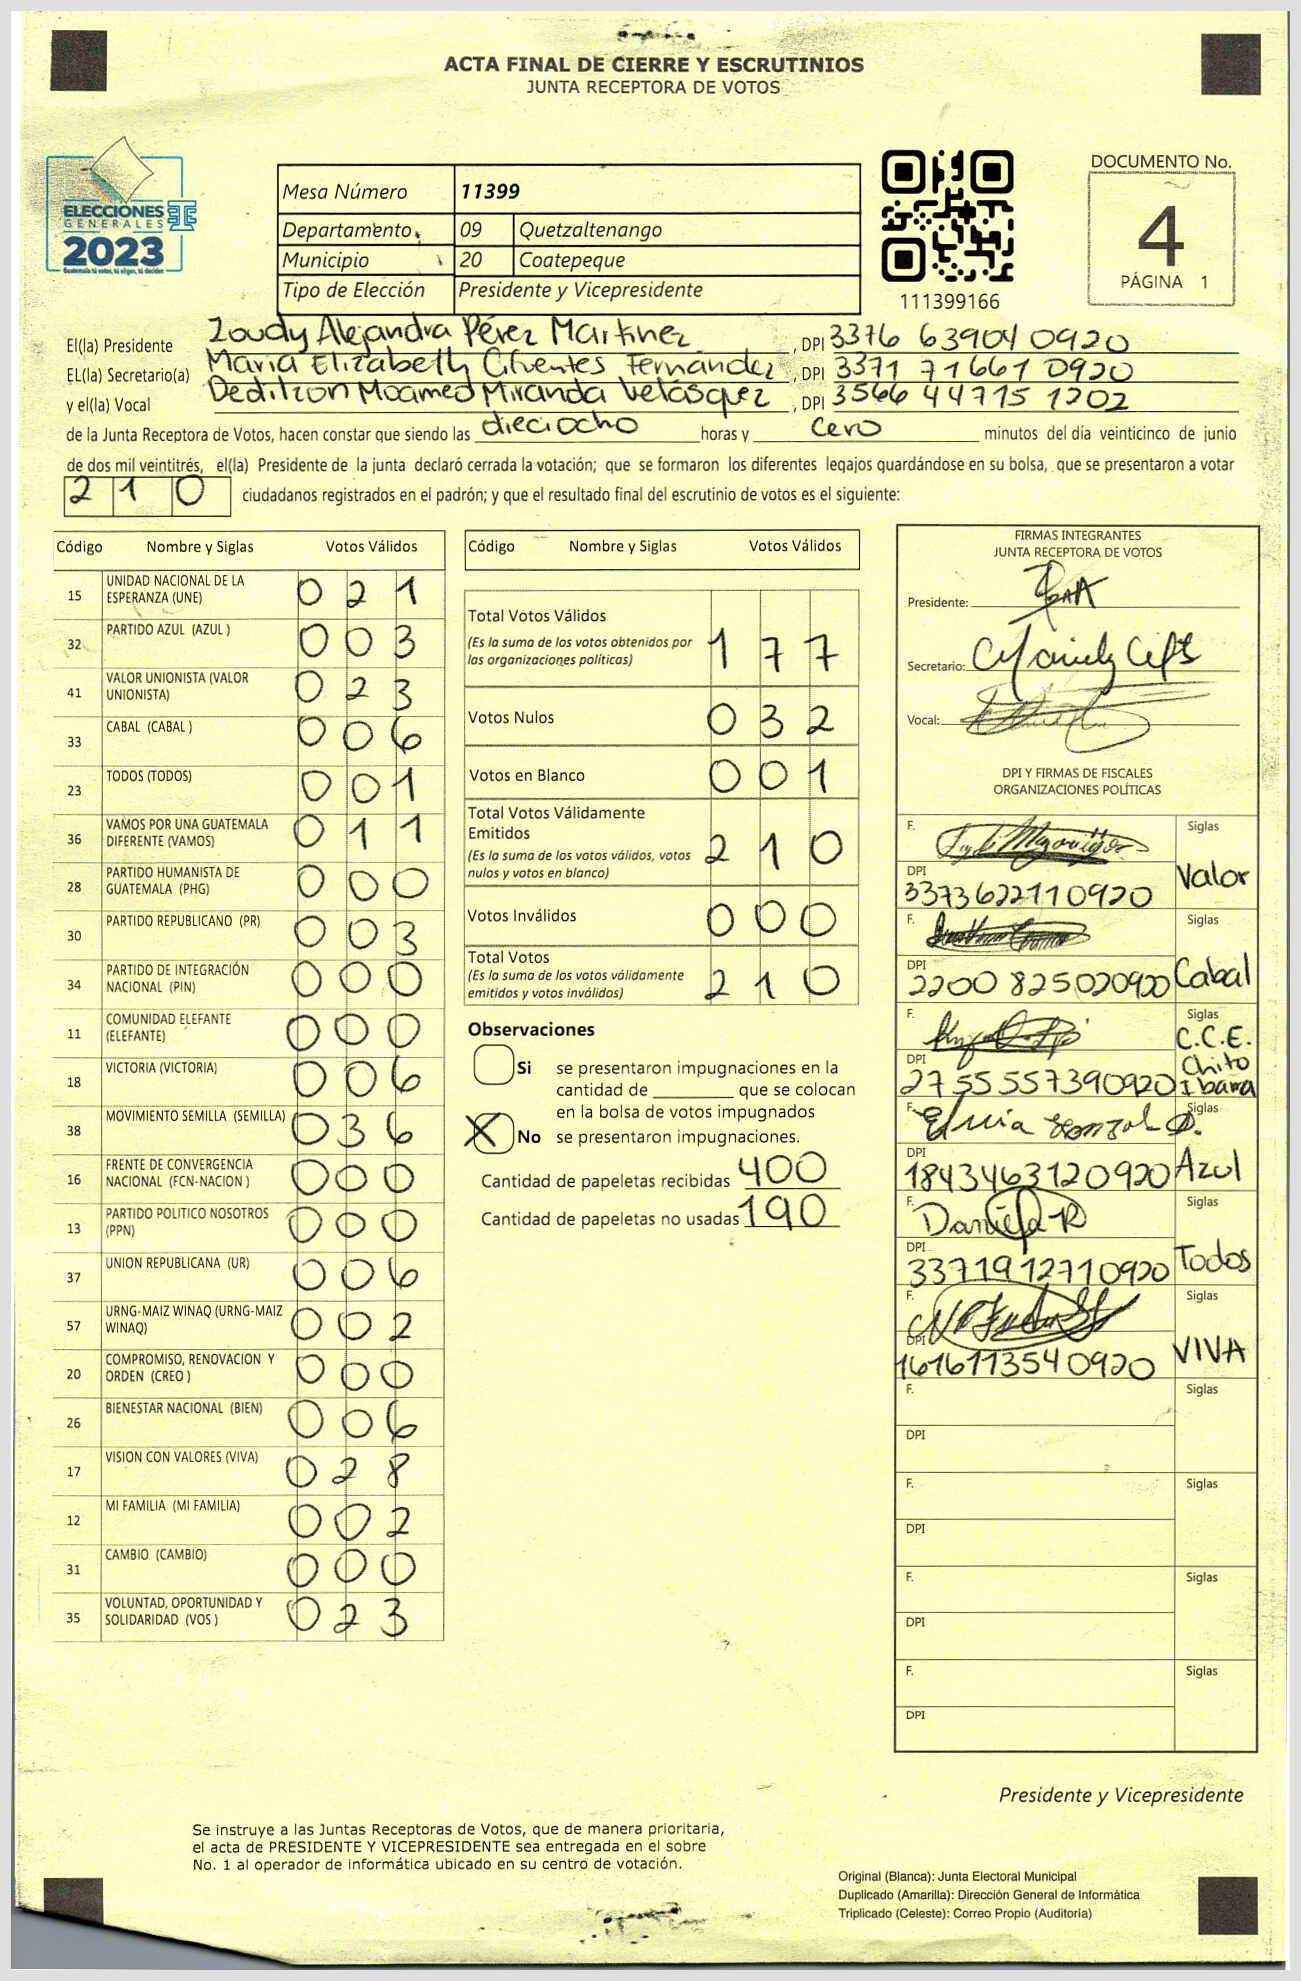 ACTA FINAL DE CIERRE Y ESCRUTINIOS
JUNTA RECEPTORA DE VOTOS
ELECCIONES
GENERALES
2023
Guatemala tú votas, tú eliges, tú decides
Mesa Número 11399
Departamento 09 Quetzaltenango
Municipio 20 Coatepeque
Tipo de Elección Presidente y Vicepresidente
111399166
DOCUMENTO No.
4
PÁGINA 1
El(la) Presidente Zoudy Alejandra Pérez Martinez, DPI 3376 63904 0920
EL(la) Secretario(a) Maria Elizabeth Cifuentes Fernández, DPI 3371 71661 0920
y el(la) Vocal Deditzon Moamed Miranda Velásquez, DPI 3566 44715 1202
de la Junta Receptora de Votos, hacen constar que siendo las dieciocho horas y cero minutos del día veinticinco de junio
de dos mil veintitrés, el(la) Presidente de la junta declaró cerrada la votación; que se formaron los diferentes legajos guardándose en su bolsa, que se presentaron a votar
210 ciudadanos registrados en el padrón; y que el resultado final del escrutinio de votos es el siguiente:
Código Nombre y Siglas Votos Válidos
15 UNIDAD NACIONAL DE LA ESPERANZA (UNE) 0 2 1
32 PARTIDO AZUL (AZUL ) 0 0 3
41 VALOR UNIONISTA (VALOR UNIONISTA) 0 2 3
33 CABAL (CABAL ) 0 0 6
23 TODOS (TODOS) 0 0 1
36 VAMOS POR UNA GUATEMALA DIFERENTE (VAMOS) 0 1 1
28 PARTIDO HUMANISTA DE GUATEMALA (PHG) 0 0 0
30 PARTIDO REPUBLICANO (PR) 0 0 3
34 PARTIDO DE INTEGRACIÓN NACIONAL (PIN) 0 0 0
11 COMUNIDAD ELEFANTE (ELEFANTE) 0 0 0
18 VICTORIA (VICTORIA) 0 0 6
38 MOVIMIENTO SEMILLA (SEMILLA) 0 3 6
16 FRENTE DE CONVERGENCIA NACIONAL (FCN-NACION ) 0 0 0
13 PARTIDO POLITICO NOSOTROS (PPN) 0 0 0
37 UNION REPUBLICANA (UR) 0 0 6
57 URNG-MAIZ WINAQ (URNG-MAIZ WINAQ) 0 0 2
20 COMPROMISO, RENOVACION Y ORDEN (CREO ) 0 0 0
26 BIENESTAR NACIONAL (BIEN) 0 0 6
17 VISION CON VALORES (VIVA) 0 2 8
12 MI FAMILIA (MI FAMILIA) 0 0 2
31 CAMBIO (CAMBIO) 0 0 0
35 VOLUNTAD, OPORTUNIDAD Y SOLIDARIDAD (VOS ) 0 2 3
Código Nombre y Siglas Votos Válidos
Total Votos Válidos 1 7 7
(Es la suma de los votos obtenidos por
las organizaciones políticas)
Votos Nulos 0 3 2
Votos en Blanco 0 0 1
Total Votos Válidamente
Emitidos 2 1 0
(Es la suma de los votos válidos, votos
nulos y votos en blanco)
Votos Inválidos 0 0 0
Total Votos 2 1 0
(Es la suma de los votos válidamente
emitidos y votos inválidos)
Observaciones
Si se presentaron impugnaciones en la
cantidad de ________ que se colocan
en la bolsa de votos impugnados
X No se presentaron impugnaciones.
Cantidad de papeletas recibidas 400
Cantidad de papeletas no usadas 190
FIRMAS INTEGRANTES
JUNTA RECEPTORA DE VOTOS
Presidente:
Secretario:
Vocal:
DPI Y FIRMAS DE FISCALES
ORGANIZACIONES POLÍTICAS
F. Siglas
DPI Valor
3373622110920
F. Siglas
DPI
2200 825020920 Cabal
F. Siglas
C.C.E.
DPI Chito
2755557390920 Ibarra
F. Siglas
DPI
1843463120920 Azul
F. Daniela R Siglas
DPI Todos
3371912710920
F. Siglas
DPI VIVA
1616113540920
F. Siglas
DPI
F. Siglas
DPI
F. Siglas
DPI
F. Siglas
DPI
Presidente y Vicepresidente
Se instruye a las Juntas Receptoras de Votos, que de manera prioritaria,
el acta de PRESIDENTE Y VICEPRESIDENTE sea entregada en el sobre
No. 1 al operador de informática ubicado en su centro de votación.
Original (Blanca): Junta Electoral Municipal
Duplicado (Amarilla): Dirección General de Informática
Triplicado (Celeste): Correo Propio (Auditoría)